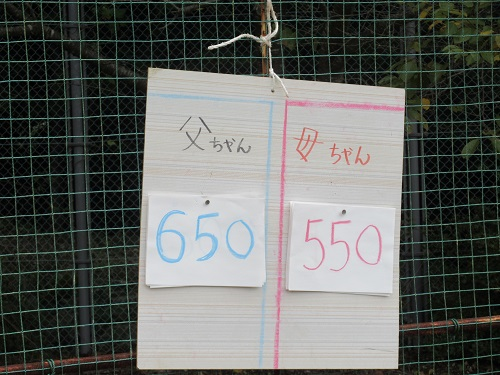 父ちゃん
母ちゃん
650
550